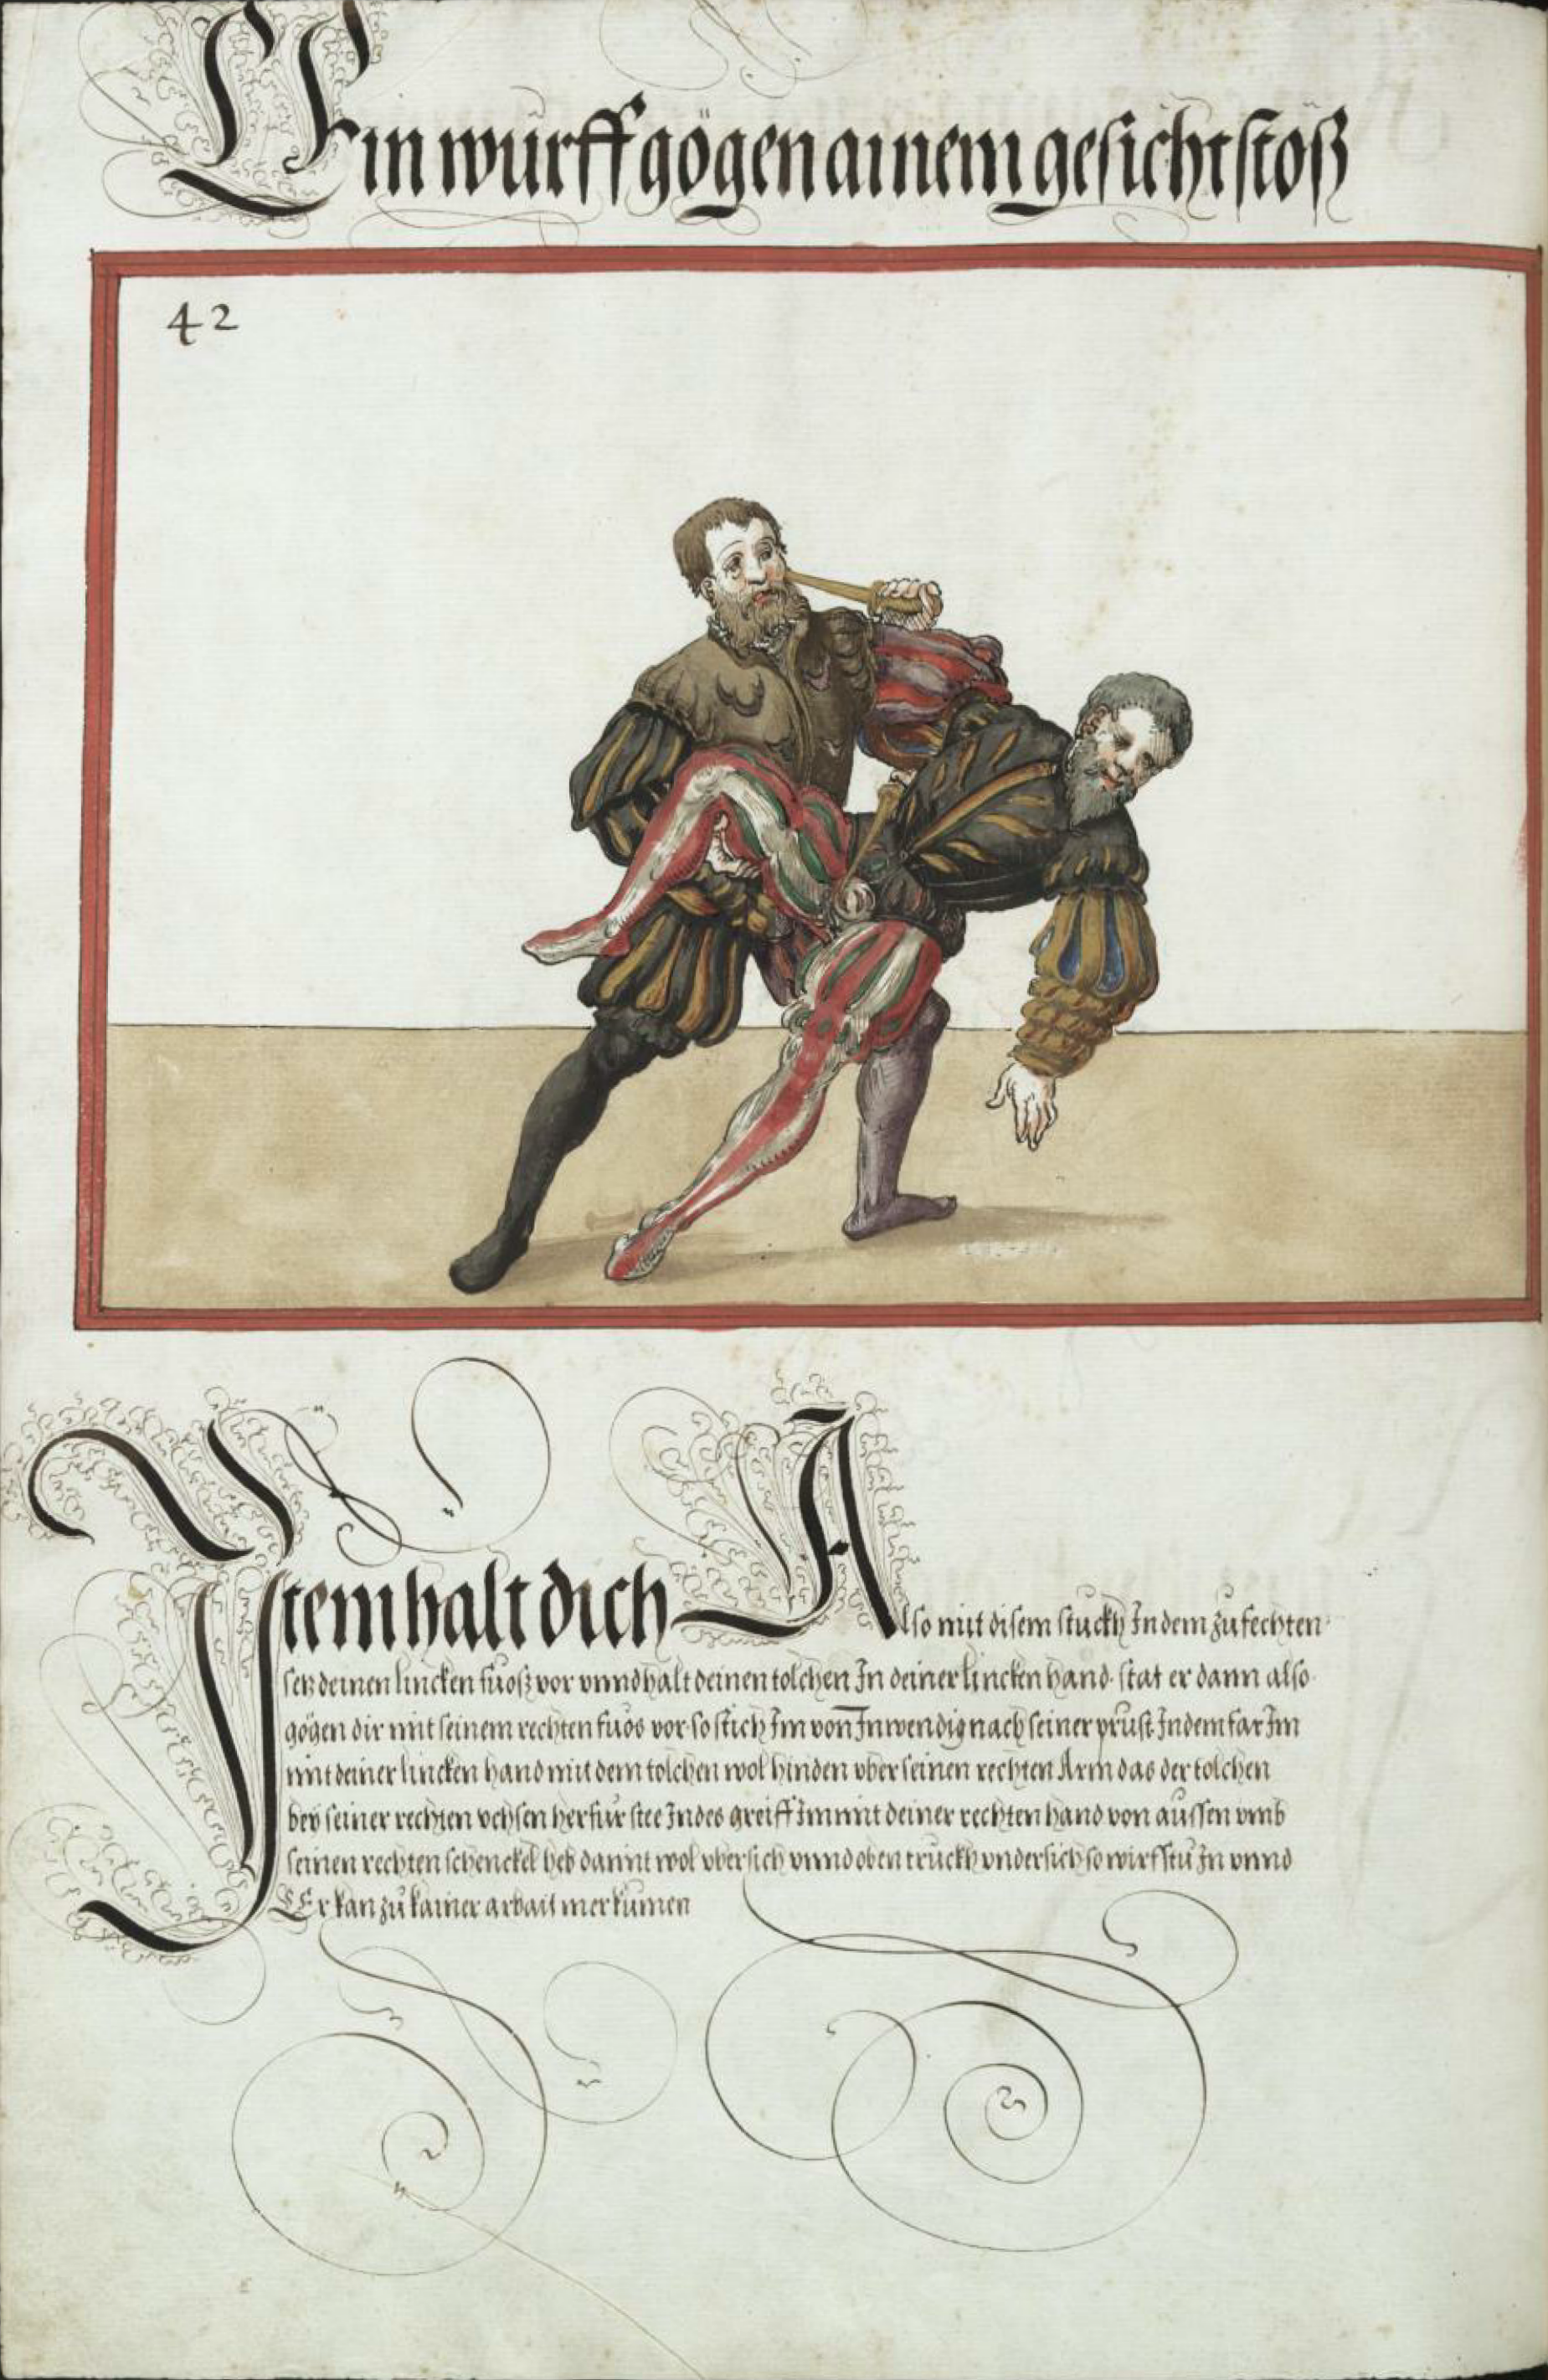 Ein wurff gögen ainem gesicht stöß
42
Item halt dich Also mit disem stuckh Indem zufechten
setz deinen lincken fuosz vor unnd halt deinen tolchen In deiner lincken hand. stat er dann also
gögen dir mit seinem rechten fuos vor. so stich Im von Inwendig nach seiner prust. Indem far Im
mit deiner lincken hand mit dem tolchen wol hinden vber seinen rechten Arm das der tolchen
bey seiner rechten vchsen herfur stee Indes greiff Im mit deiner rechten hand von aussen vmb
seinen rechten schenckel heb damit wol vbersich vnnd oben truckh vndersich so wirfstu In vnnd
Er kan zu kainer arbait mer kumen